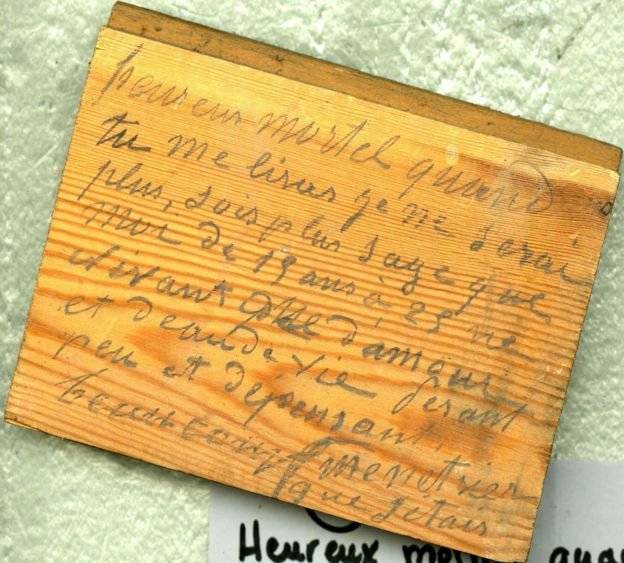 heureux mortel quand
tu me liras je ne serai
plus, sois plus sage que
moi de 15 ans à 25 ne
vivant que d'amour
et d'eau de vie fesant
peu et depensant
beaucoup Menetrier
que j'etais
Heureux